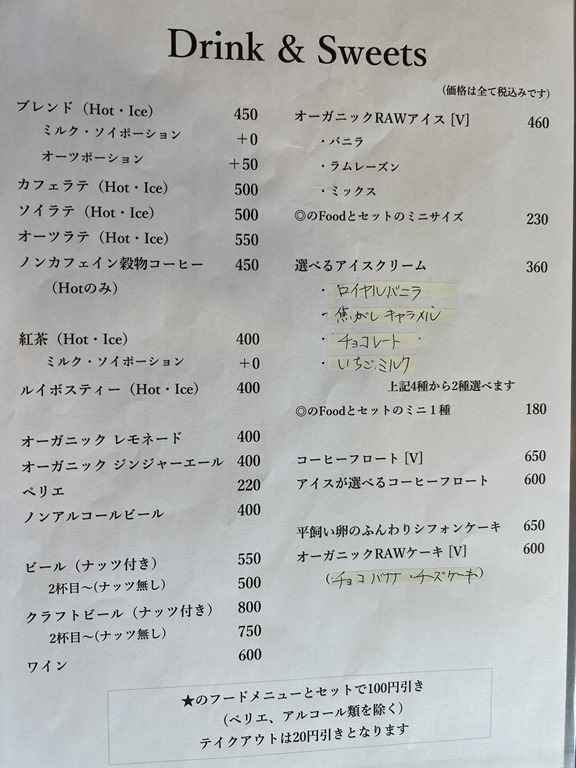 Drink & Sweets
(価格は全て税込みです)
ブレンド（Hot・Ice） 450
ミルク・ソイポーション +0
オーツポーション +50
カフェラテ（Hot・Ice） 500
ソイラテ（Hot・Ice） 500
オーツラテ（Hot・Ice） 550
ノンカフェイン穀物コーヒー 450
（Hotのみ）
紅茶（Hot・Ice） 400
ミルク・ソイポーション +0
ルイボスティー（Hot・Ice） 400
オーガニック レモネード 400
オーガニック ジンジャーエール 400
ペリエ 220
ノンアルコールビール 400
ビール（ナッツ付き） 550
2杯目〜(ナッツ無し) 500
クラフトビール（ナッツ付き） 800
2杯目〜(ナッツ無し) 750
ワイン 600
オーガニックRAWアイス [V] 460
・バニラ
・ラムレーズン
・ミックス
◎のFoodとセットのミニサイズ 230
選べるアイスクリーム 360
・ロイヤルバニラ
・焦がしキャラメル
・チョコレート
・いちごミルク
上記4種から2種選べます
◎のFoodとセットのミニ1種 180
コーヒーフロート [V] 650
アイスが選べるコーヒーフロート 600
平飼い卵のふんわりシフォンケーキ 650
オーガニックRAWケーキ [V] 600
（・チョコバナナ・チーズケーキ）
★のフードメニューとセットで100円引き
（ペリエ、アルコール類を除く）
テイクアウトは20円引きとなります